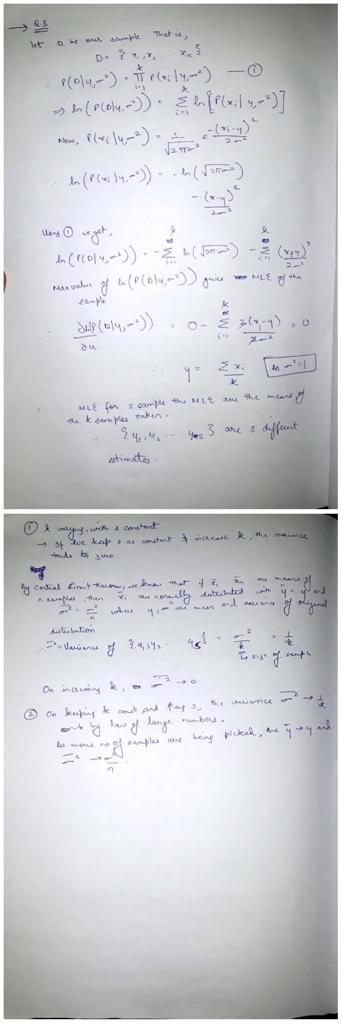 → Q.3
let D be our sample That is,
D = { x₁, x₂ ... xₖ }
∴ P(D|y,σ²) = ∏ᵢ₌₁ᵏ P(xᵢ|y,σ²) — ①
⇒ ln(P(D|y,σ²)) = Σᵢ₌₁ᵏ ln[P(xᵢ|y,σ²)]
Now, P(xᵢ|y,σ²) = 1/√(2πσ²) e^(-(xᵢ-y)²/2σ²)
∴ ln(P(xᵢ|y,σ²)) = -ln(√(2πσ²))
- (x-y)²/2σ²
Using ① we get,
ln(P(D|y,σ²)) = -Σᵢ₌₁ᵏ ln(√(2πσ²)) - Σᵢ₌₁ᵏ (xᵢ-y)²/2σ²
Max value of ln(P(D|y,σ²)) gives MLE of the
sample
∴ = 0 - Σᵢ₌₁ᵏ 2(xᵢ-y)/2σ² = 0
∴ y = Σxᵢ/k As σ²=1
∴ MLE for s sample the MLE are the means of
the k samples taken.
∴ {y₁, y₂ ... yₛ} are s different
estimates.
① k varying, with s constant
→ If we keep s as constant & increase k, the variance
tends to zero.
By Central Limit theorem, we know that if x̄₁ x̄ₙ are means of
n samples, then x̄ᵢ are normally distributed with ȳ = y and
σ̄² = σ²/n where y, σ² are mean and variance of original
distribution
∴ σ̄² = Variance of {y₁, y₂ ... yₛ} = σ²/k = 1/k
↳ size of sample
On increasing k, σ̄² → 0
② On keeping k const and ↑ing s, the variance σ̄² → 1/k
by law of large numbers.
As more no of samples are being picked, the ȳ → y and
σ̄² → σ²/n.